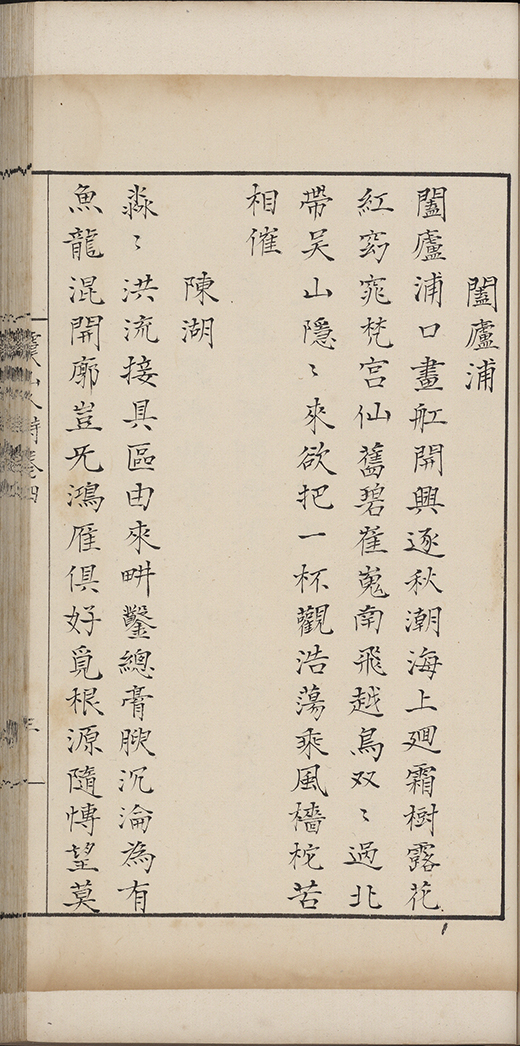 闔廬浦
闔廬浦口畫舡開興逐秋潮海上迴霜樹露花
紅窈窕梵宮仙舊碧崔嵬南飛越鳥双〻過北
帶吴山隱〻來欲把一杯觀浩蕩乘風檣柁苦
相催
陳湖
淼〻洪流接具區由來畊鑿總膏腴沉淪為有
魚龍混開廓豈旡鴻雁俱好覓根源隨愽望莫
山人詩卷四
三